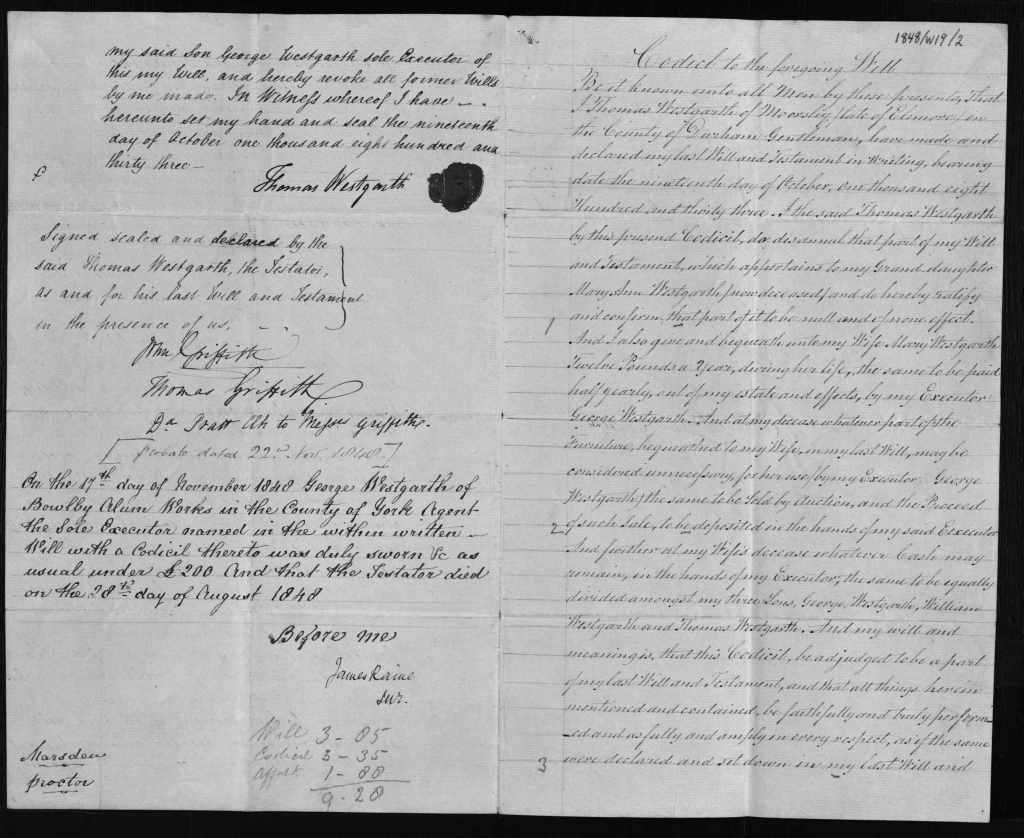 my said Son George Westgarth sole Executor of
this my Will, and hereby revoke all former Wills
by me made. In Witness whereof I have
hereunto set my hand and seal the nineteenth
day of October one thousand eight hundred and
thirty three
Thomas Westgarth
Signed sealed and declared by the
said Thomas Westgarth, the Testator,
as and for his last Will and Testament
in the presence of us.
John Griffith
Thomas Griffith
Pratt to Messrs Griffiths.
[probate dated 22nd Nov. 1848]
On the 17th day of November 1848 George Westgarth of
Bowlby Alum Works in the County of York Agent
the Sole Executor named in the within written
Will with a Codicil thereto was duly sworn &c as
usual under £200 And that the Testator died
on the 28th day of August 1848
Before me
James Raine
Sur.
Will 3 - 85
Codicil 3 - 35
1 - 88
9 - 28
Marsden
proctor
1848/W19/2
Codicil to the foregoing Will
Be it known unto all Men by these presents, That
I Thomas Westgarth of Moorsley (late of Elimore) in
the County of Durham Gentleman, have made and
declared my last Will and Testament in Writing, bearing
date the nineteenth day of October, one thousand eight
Hundred and thirty three. I the said Thomas Westgarth
by this present Codicil, do disannul that part of my Will
and Testament, which appertains to my Grand daughter
Mary Ann Westgarth, (now deceased) and do hereby ratify
and confirm, that part of it to be null and of none effect.
1
And I also give and bequeath unto my Wife Mary Westgarth
Twelve Pounds a Year, during her life, the same to be paid
half yearly, out of my estate and effects, by my Executor
George Westgarth. And at my decease whatever part of the
Furniture, bequeathed to my Wife, in my last Will, may be
considered unnecessary, for her use, (by my Executor George
Westgarth) the same to be Sold by Auction, and the Proceed
of such Sale, to be deposited in the hands of my said Executor
2
And further at my Wife's decease whatever Cash may
remain, in the hands of my Executor, the same to be equally
divided amongst my three Sons, George, Westgarth, William
Westgarth and Thomas Westgarth. And my will and
meaning is, that this Codicil, be adjudged to be a part
of my last Will and Testament, and that all things herein
mentioned and contained, be faithfully and truly perform
-ed and as fully and amply in every respect, as if the same
3
were declared and set down in my last Will and